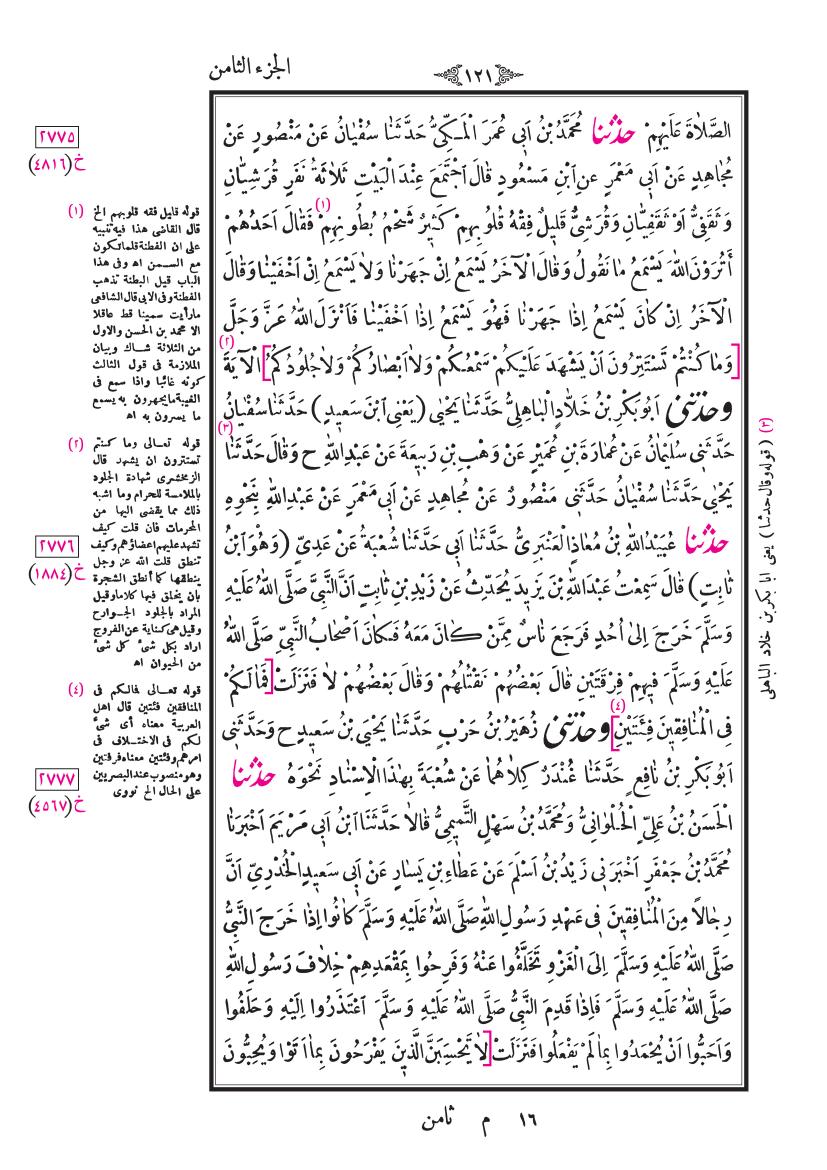 الجزء الثامن
١٢١
الصَّلَاةَ عَلَيْهِمْ حَدَّثَنَا مُحَمَّدُ بْنُ اَبِى عُمَرَ الْمَكِّىُّ حَدَّثَنَا سُفْيَانُ عَنْ مَنْصُورٍ عَنْ
مُجَاهِدٍ عَنْ اَبِى مَعْمَرٍ عَنِ ابْنِ مَسْعُودٍ قَالَ اجْتَمَعَ عِنْدَ الْبَيْتِ ثَلَاثَةُ نَفَرٍ قُرَشِيَّانِ
وَثَقَفِىٌّ اَوْ ثَقَفِيَّانِ وَقُرَشِىٌّ قَلِيلٌ فِقْهُ قُلُوبِهِمْ (١) كَثِيرٌ شَحْمُ بُطُونِهِمْ فَقَالَ اَحَدُهُمْ
أَتُرَوْنَ اللهَ يَسْمَعُ مَا نَقُولُ وَقَالَ الْآخَرُ يَسْمَعُ اِنْ جَهَرْنَا وَلَا يَسْمَعُ اِنْ اَخْفَيْنَا وَقَالَ
الْآخَرُ اِنْ كَانَ يَسْمَعُ اِذَا جَهَرْنَا فَهُوَ يَسْمَعُ اِذَا اَخْفَيْنَا فَاَنْزَلَ اللهُ عَزَّ وَجَلَّ
[وَمَا كُنْتُمْ تَسْتَتِرُونَ اَنْ يَشْهَدَ عَلَيْكُمْ سَمْعُكُمْ وَلَا اَبْصَارُكُمْ وَلَا جُلُودُكُمْ] الْآيَةَ (٢)
وَحَدَّثَنِى اَبُو بَكْرِ بْنُ خَلَّادٍ الْبَاهِلِىُّ حَدَّثَنَا يَحْيٰى (يَعْنِى ابْنَ سَعِيدٍ) حَدَّثَنَا سُفْيَانُ
حَدَّثَنِى سُلَيْمَانُ عَنْ عُمَارَةَ بْنِ عُمَيْرٍ عَنْ وَهْبِ بْنِ رَبِيعَةَ عَنْ عَبْدِ اللهِ ح وَقَالَ حَدَّثَنَا (٣)
يَحْيٰى حَدَّثَنَا سُفْيَانُ حَدَّثَنِى مَنْصُورٌ عَنْ مُجَاهِدٍ عَنْ اَبِى مَعْمَرٍ عَنْ عَبْدِ اللهِ بِنَحْوِهِ
حَدَّثَنَا عُبَيْدُ اللهِ بْنُ مُعَاذٍ الْعَنْبَرِىُّ حَدَّثَنَا اَبِى حَدَّثَنَا شُعْبَةُ عَنْ عَدِىٍّ (وَهُوَ ابْنُ
ثَابِتٍ) قَالَ سَمِعْتُ عَبْدَ اللهِ بْنَ يَزِيدَ يُحَدِّثُ عَنْ زَيْدِ بْنِ ثَابِتٍ اَنَّ النَّبِىَّ صَلَّى اللهُ عَلَيْهِ
وَسَلَّمَ خَرَجَ اِلٰى اُحُدٍ فَرَجَعَ نَاسٌ مِمَّنْ كَانَ مَعَهُ فَكَانَ اَصْحَابُ النَّبِىِّ صَلَّى اللهُ
عَلَيْهِ وَسَلَّمَ فِيهِمْ فِرْقَتَيْنِ قَالَ بَعْضُهُمْ نَقْتُلُهُمْ وَقَالَ بَعْضُهُمْ لَا فَنَزَلَتْ [فَمَا لَكُمْ
فِى الْمُنَافِقِينَ فِئَتَيْنِ] (٤) وَحَدَّثَنِى زُهَيْرُ بْنُ حَرْبٍ حَدَّثَنَا يَحْيَى بْنُ سَعِيدٍ ح وَحَدَّثَنِى
اَبُو بَكْرِ بْنُ نَافِعٍ حَدَّثَنَا غُنْدَرٌ كِلَاهُمَا عَنْ شُعْبَةَ بِهٰذَا الْاِسْنَادِ نَحْوَهُ حَدَّثَنَا
الْحَسَنُ بْنُ عَلِىٍّ الْحُلْوَانِىُّ وَمُحَمَّدُ بْنُ سَهْلٍ التَّمِيمِىُّ قَالَا حَدَّثَنَا ابْنُ اَبِى مَرْيَمَ اَخْبَرَنَا
مُحَمَّدُ بْنُ جَعْفَرٍ اَخْبَرَنِى زَيْدُ بْنُ اَسْلَمَ عَنْ عَطَاءِ بْنِ يَسَارٍ عَنْ اَبِى سَعِيدٍ الْخُدْرِىِّ اَنَّ
رِجَالًا مِنَ الْمُنَافِقِينَ فِى عَهْدِ رَسُولِ اللهِ صَلَّى اللهُ عَلَيْهِ وَسَلَّمَ كَانُوا اِذَا خَرَجَ النَّبِىُّ
صَلَّى اللهُ عَلَيْهِ وَسَلَّمَ اِلَى الْغَزْوِ تَخَلَّفُوا عَنْهُ وَفَرِحُوا بِمَقْعَدِهِمْ خِلَافَ رَسُولِ اللهِ
صَلَّى اللهُ عَلَيْهِ وَسَلَّمَ فَاِذَا قَدِمَ النَّبِىُّ صَلَّى اللهُ عَلَيْهِ وَسَلَّمَ اعْتَذَرُوا اِلَيْهِ وَحَلَفُوا
وَاَحَبُّوا اَنْ يُحْمَدُوا بِمَا لَمْ يَفْعَلُوا فَنَزَلَتْ [لَا تَحْسَبَنَّ الَّذِينَ يَفْرَحُونَ بِمَا اَتَوْا وَيُحِبُّونَ
٢٧٧٥
خ (٤٨١٦)
(١) قوله قليل فقه قلوبهم الخ
قال القاضى هذا فيه تنبيه
على ان الفطنة قلما تكون
مع السمن اه وفى هذا
الباب قيل البطنة تذهب
الفطنة وفى الابى قال الشافعى
مارأيت سمينا قط عاقلا
الا محمد بن الحسن والاول
من الثلاثة شاك وبيان
الملازمة فى قول الثالث
كونه غائبا واذا سمع فى
الغيبة مايجهرون به يسمع
ما يسرون به اه
(٢) قوله تعالى وما كنتم
تستترون ان يشهد قال
الزمخشرى شهادة الجلود
بالملامسة للحرام وما اشبه
ذلك مما يفضى اليها من
المحرمات فان قلت كيف
تشهد عليهم اعضاؤهم وكيف
تنطق قلت الله عز وجل
ينطقها كما أنطق الشجرة
بان يخلق فيها كلاما وقيل
المراد بالجلود الجوارح
وقيل هى كناية عن الفروج
اراد بكل شئ كل شئ
من الحيوان اه
٢٧٧٦
خ (١٨٨٤)
(٤) قوله تعالى فمالكم فى
المنافقين فئتين قال اهل
العربية معناه أى شئ
لكم فى الاختلاف فى
امرهم وفئتين معناه فرقتين
وهو منصوب عند البصريين
على الحال الخ نووى
٢٧٧٧
خ (٤٥٦٧)
(٣) (قوله وقال حدثنا) يعنى ابا بكر بن خلاد الباهلى
١٦ م ثامن